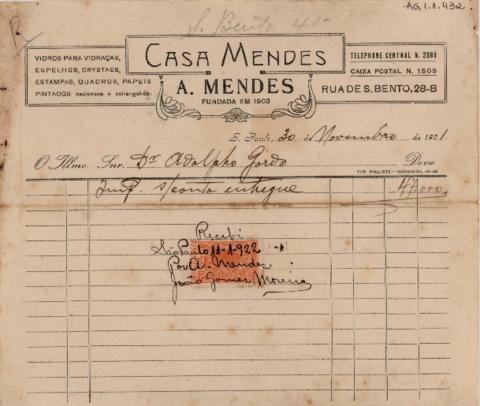 AG.1.1.432
S. Bento 45
VIDROS PARA VIDRAÇAS,
ESPELHOS, CRYSTAES,
ESTAMPAS, QUADROS, PAPEIS
PINTADOS nacionaes e estrangeiros
CASA MENDES
A. MENDES
FUNDADA EM 1903
TELEPHONE CENTRAL N. 2361
CAIXA POSTAL N. 1505
RUA DE S. BENTO, 28-B
S. Paulo, 30 de Novembro de 1921
O Illmo. Snr. Dr Adolpho Gordo Deve
TYP. PAULISTA
Imp. s/conta entregue 47.000
Recebi
São Paulo 11-1-922
Por A. Mendes
João Gomes Moreira